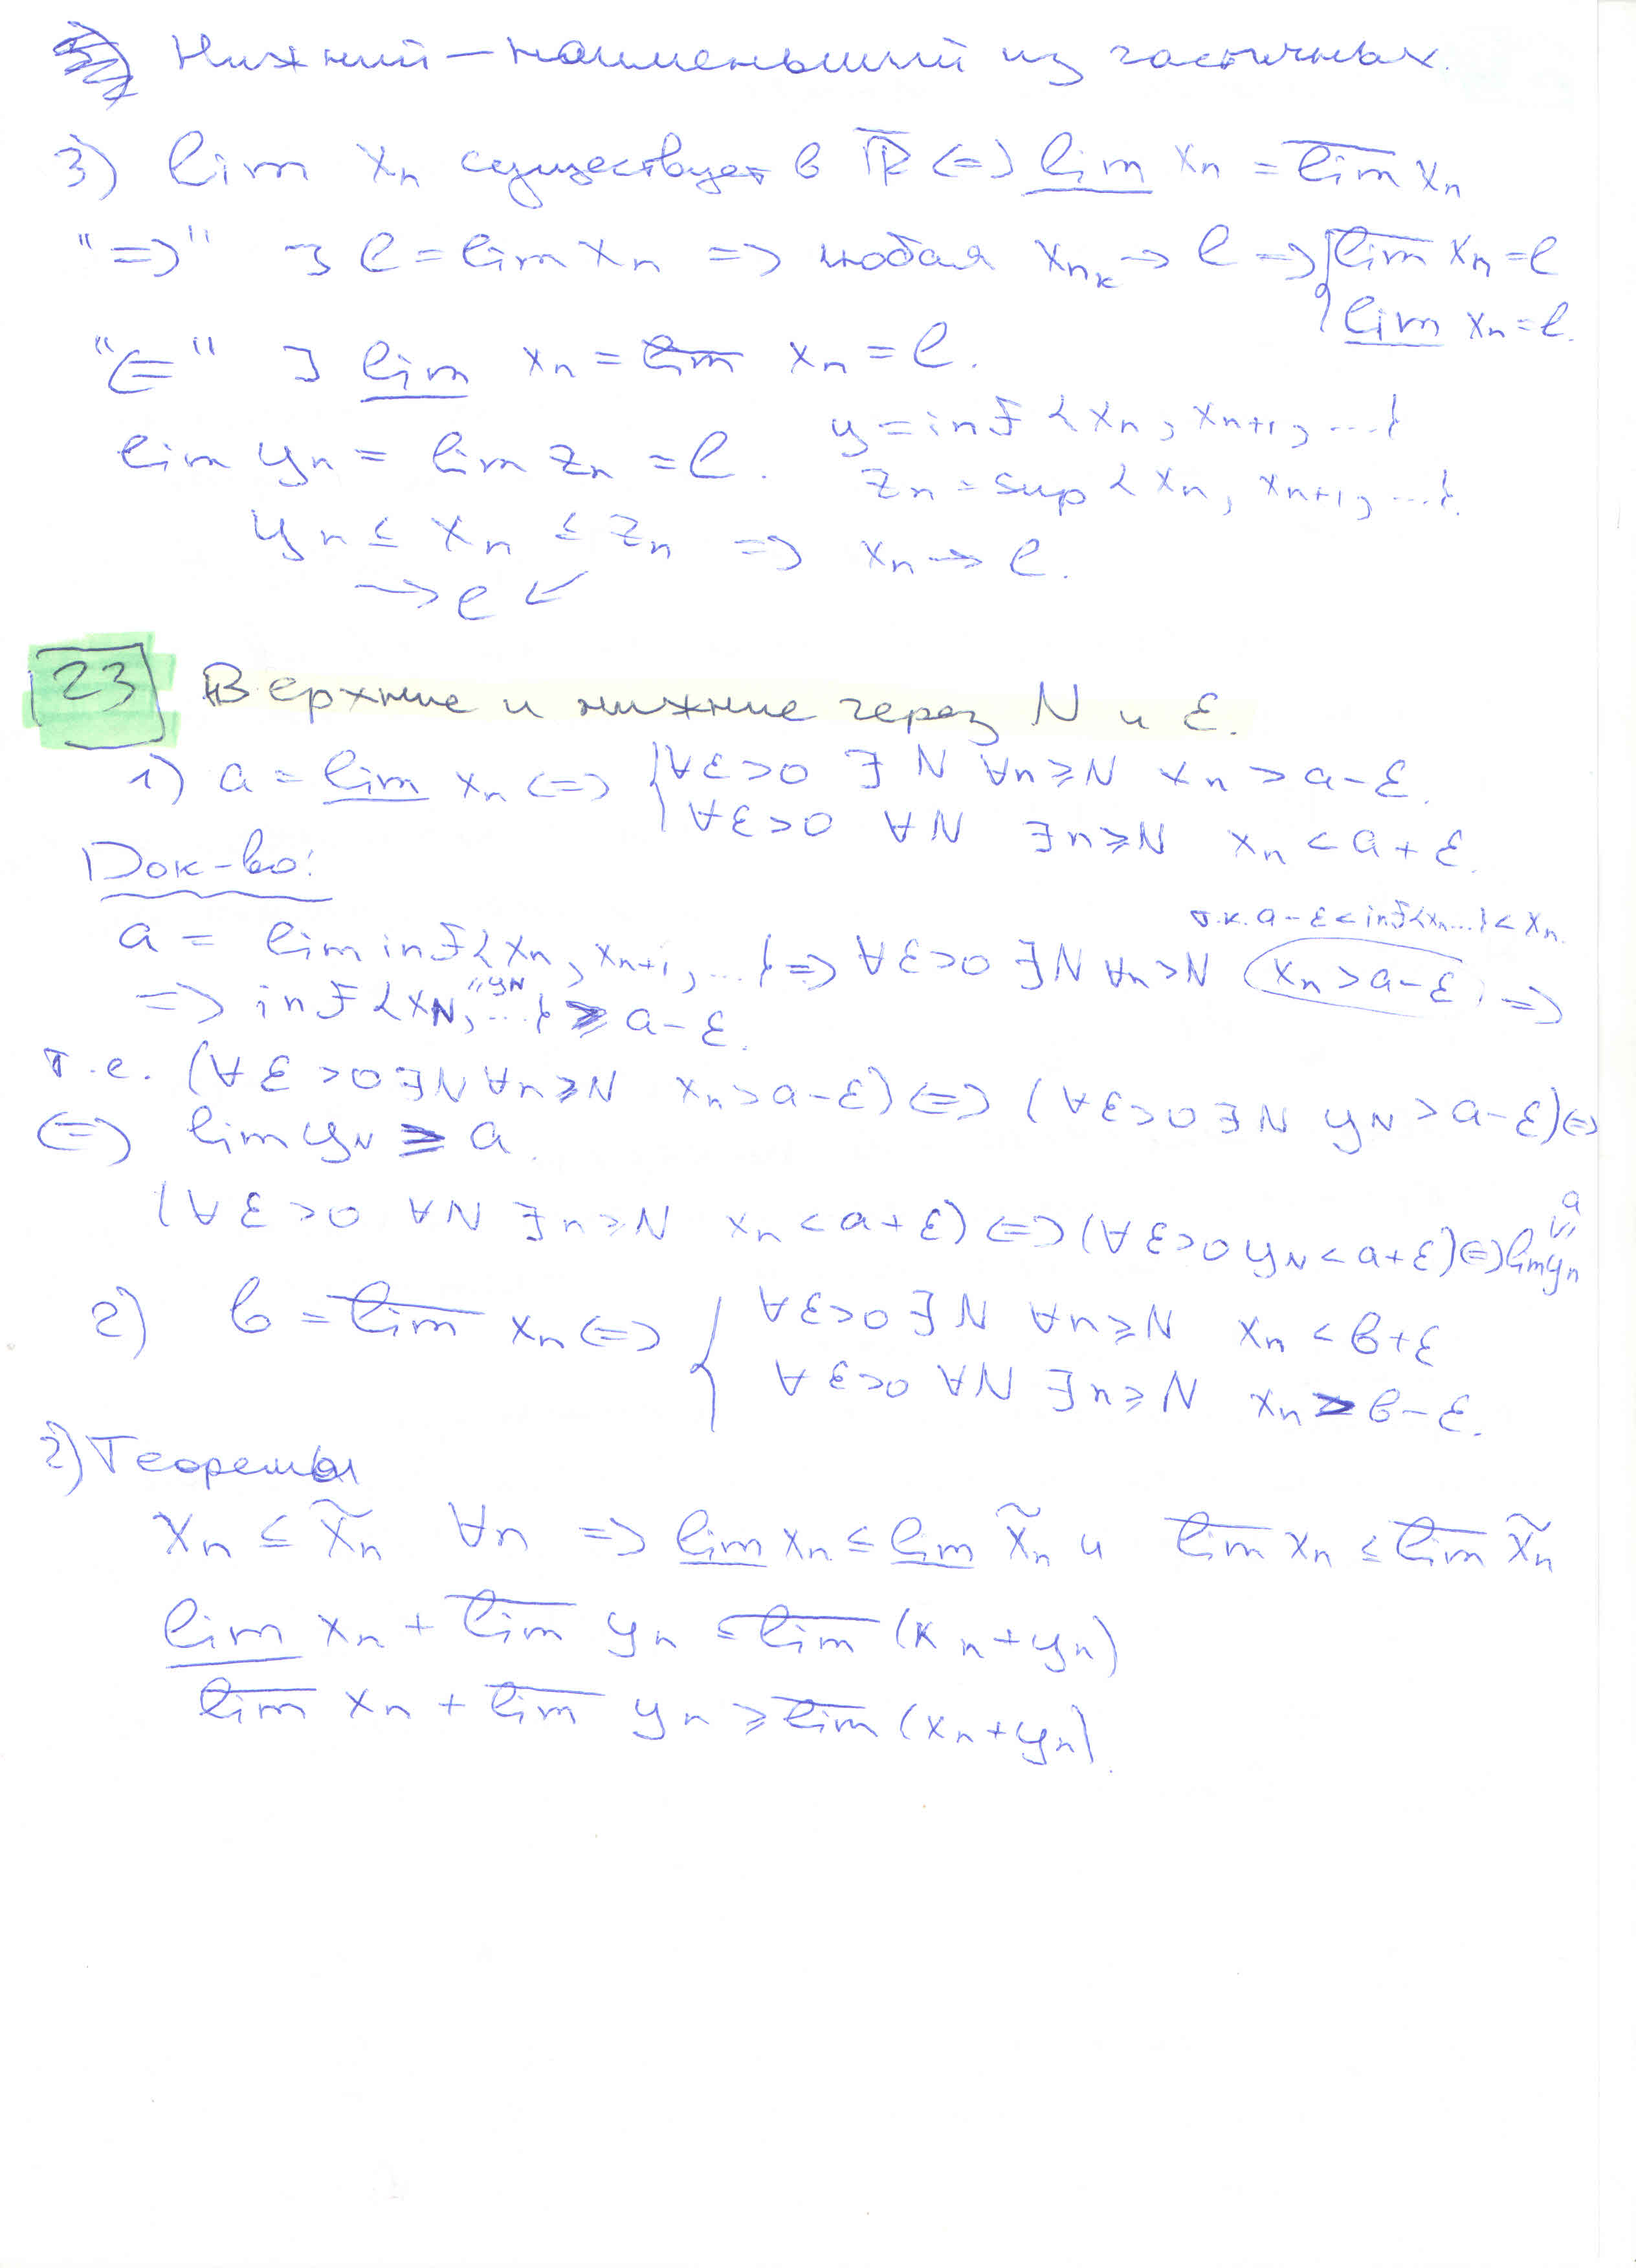 Нижний – наименьший из частичных.
3) lim xₙ существует в R̅ (=) l̲i̲m̲ xₙ = l̅i̅m̅ xₙ
"=>" ⊐ l = lim xₙ => любая xₙₖ → l => { l̅i̅m̅ xₙ = l
l̲i̲m̲ xₙ = l.
"<=" ⊐ l̲i̲m̲ xₙ = l̅i̅m̅ xₙ = l.
y = inf {xₙ, xₙ₊₁, ...}
lim yₙ = lim zₙ = l.
zₙ = sup {xₙ, xₙ₊₁, ...}.
yₙ ≤ xₙ ≤ zₙ => xₙ → l.
→ l ←
23 Верхние и нижние через N и ε.
1) a = l̲i̲m̲ xₙ <=> { ∀ε>0 ∃N ∀n≥N xₙ > a-ε.
∀ε>0 ∀N ∃n≥N xₙ < a+ε.
Док-во:
т.к. a-ε < inf{xₙ...} < xₙ.
a = lim inf{xₙ, xₙ₊₁, ...} => ∀ε>0 ∃N ∀n>N xₙ > a-ε =>
"yN
=> inf {xN, ...} ≥ a-ε.
т.е. (∀ε>0 ∃N ∀n≥N xₙ > a-ε) <=> (∀ε>0 ∃N yN > a-ε) <=>
<=> lim yN ≥ a.
(∀ε>0 ∀N ∃n≥N xₙ < a+ε) <=> (∀ε>0 yN < a+ε) <=> lim yₙ ≤ a
2) b = l̅i̅m̅ xₙ <=> { ∀ε>0 ∃N ∀n≥N xₙ < b+ε
∀ε>0 ∀N ∃n≥N xₙ > b-ε.
2) Теоремы
xₙ ≤ x̃ₙ ∀n => l̲i̲m̲ xₙ ≤ l̲i̲m̲ x̃ₙ и l̅i̅m̅ xₙ ≤ l̅i̅m̅ x̃ₙ
l̲i̲m̲ xₙ + l̅i̅m̅ yₙ ≤ l̅i̅m̅ (xₙ+yₙ)
l̅i̅m̅ xₙ + l̅i̅m̅ yₙ ≥ l̅i̅m̅ (xₙ+yₙ).